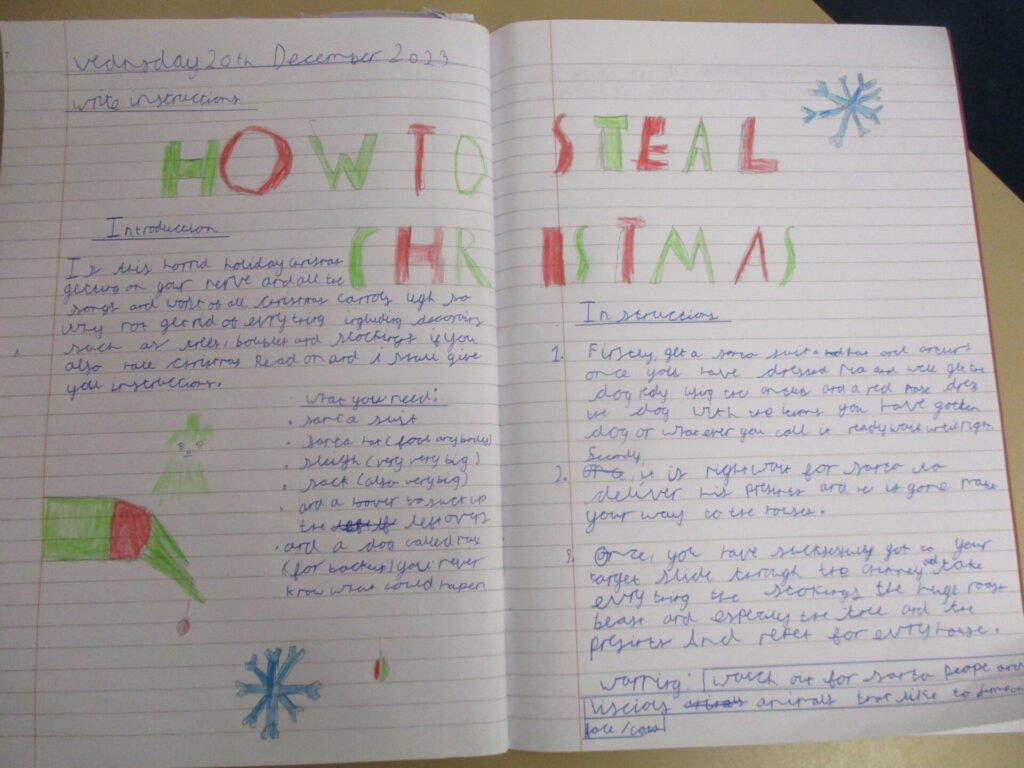 Wednesday 20th December 2023
write instructions
HOW TO STEAL
CHRISTMAS
Introduccion
Is this horrid holiday Christmas
getting on your nerve and all the
songs and worst of all Christmas carrols ugh so
why not get rid of evrything including decorations
such as trees, baubles and stockings if you
also hate Christmas Read on and i shall give
you instruccions.
what you need:
• santa suit
• santa hat (for anybody)
• sleigh (very very big)
• sack (also very big)
• and a hoover to suck up
the leftovers
• and a dog called max
(for backup) you never
know what could happen
Instruccions
1. Firstly, get a santa suit and hat and
once you have dressed and get the
dog redy using the and a red nose dress
the dog with the items you have gotten
dog or whatever you call it ready
Secondly,
2. it is right wait for santa to
deliver his presents and he is gone make
your way to the houses.
3. Once, you have sucksessfuly got to your
target slide through the chimney and take
evrything the stockings the huge roast
beast and especily the tree and the
presents And repet for evry house.
warning: watch out for santa people and
viscious animals that like to